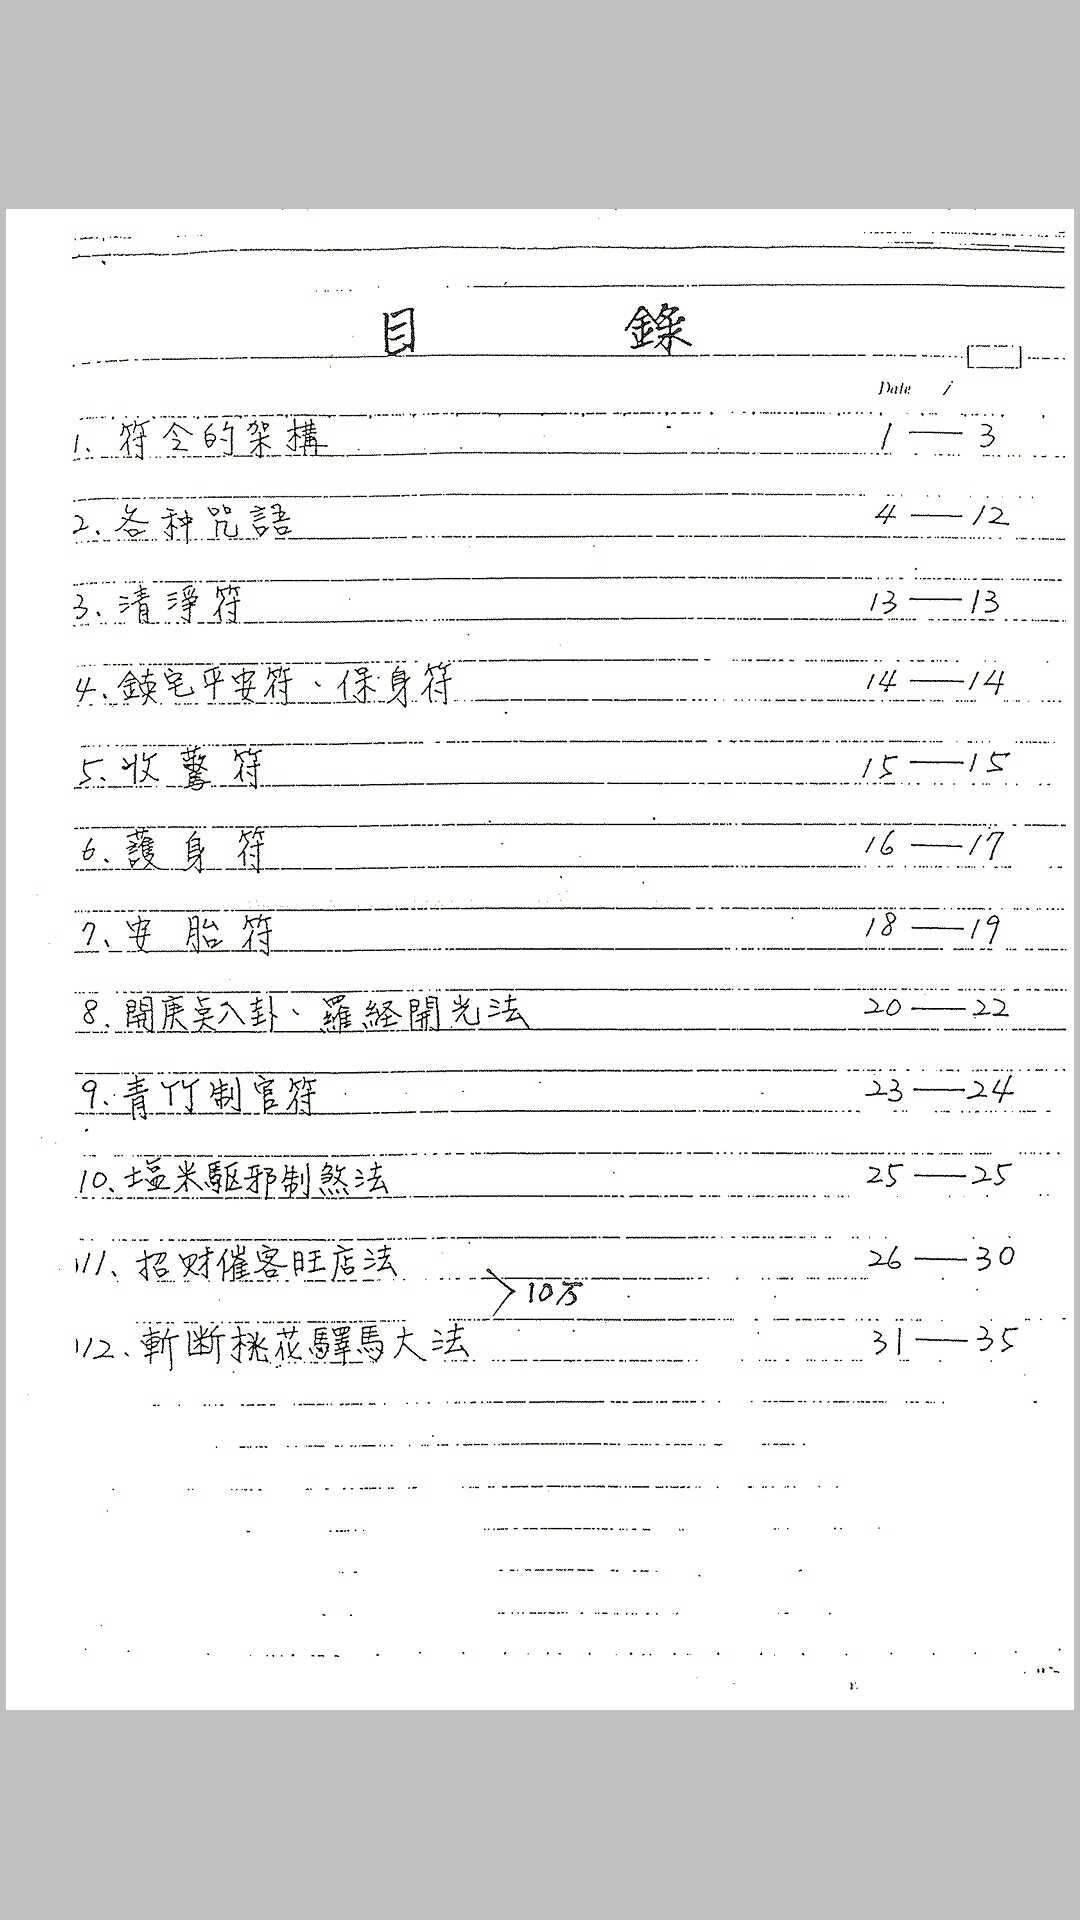 目 錄
Date /
1、符令的架構 1—3
2、各种咒語 4—12
3、清淨符 13—13
4、鎮宅平安符、保身符 14—14
5、收驚符 15—15
6、護身符 16—17
7、安胎符 18—19
8、開庚 八卦、羅経開光法 20—22
9、青竹制官符 23—24
10、塩米駆邪制煞法 25—25
11、招财催客旺店法 26—30
10万
12、斬断桃花驛馬大法 31—35